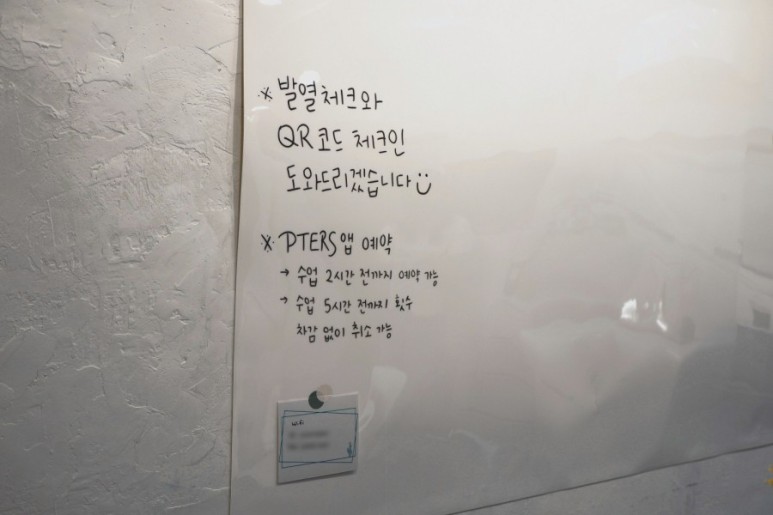 ※ 발열체크와
QR코드 체크인
도와드리겠습니다
※ PTERS앱 예약
→ 수업 2시간 전까지 예약 가능
→ 수업 5시간 전까지 횟수
차감 없이 취소 가능